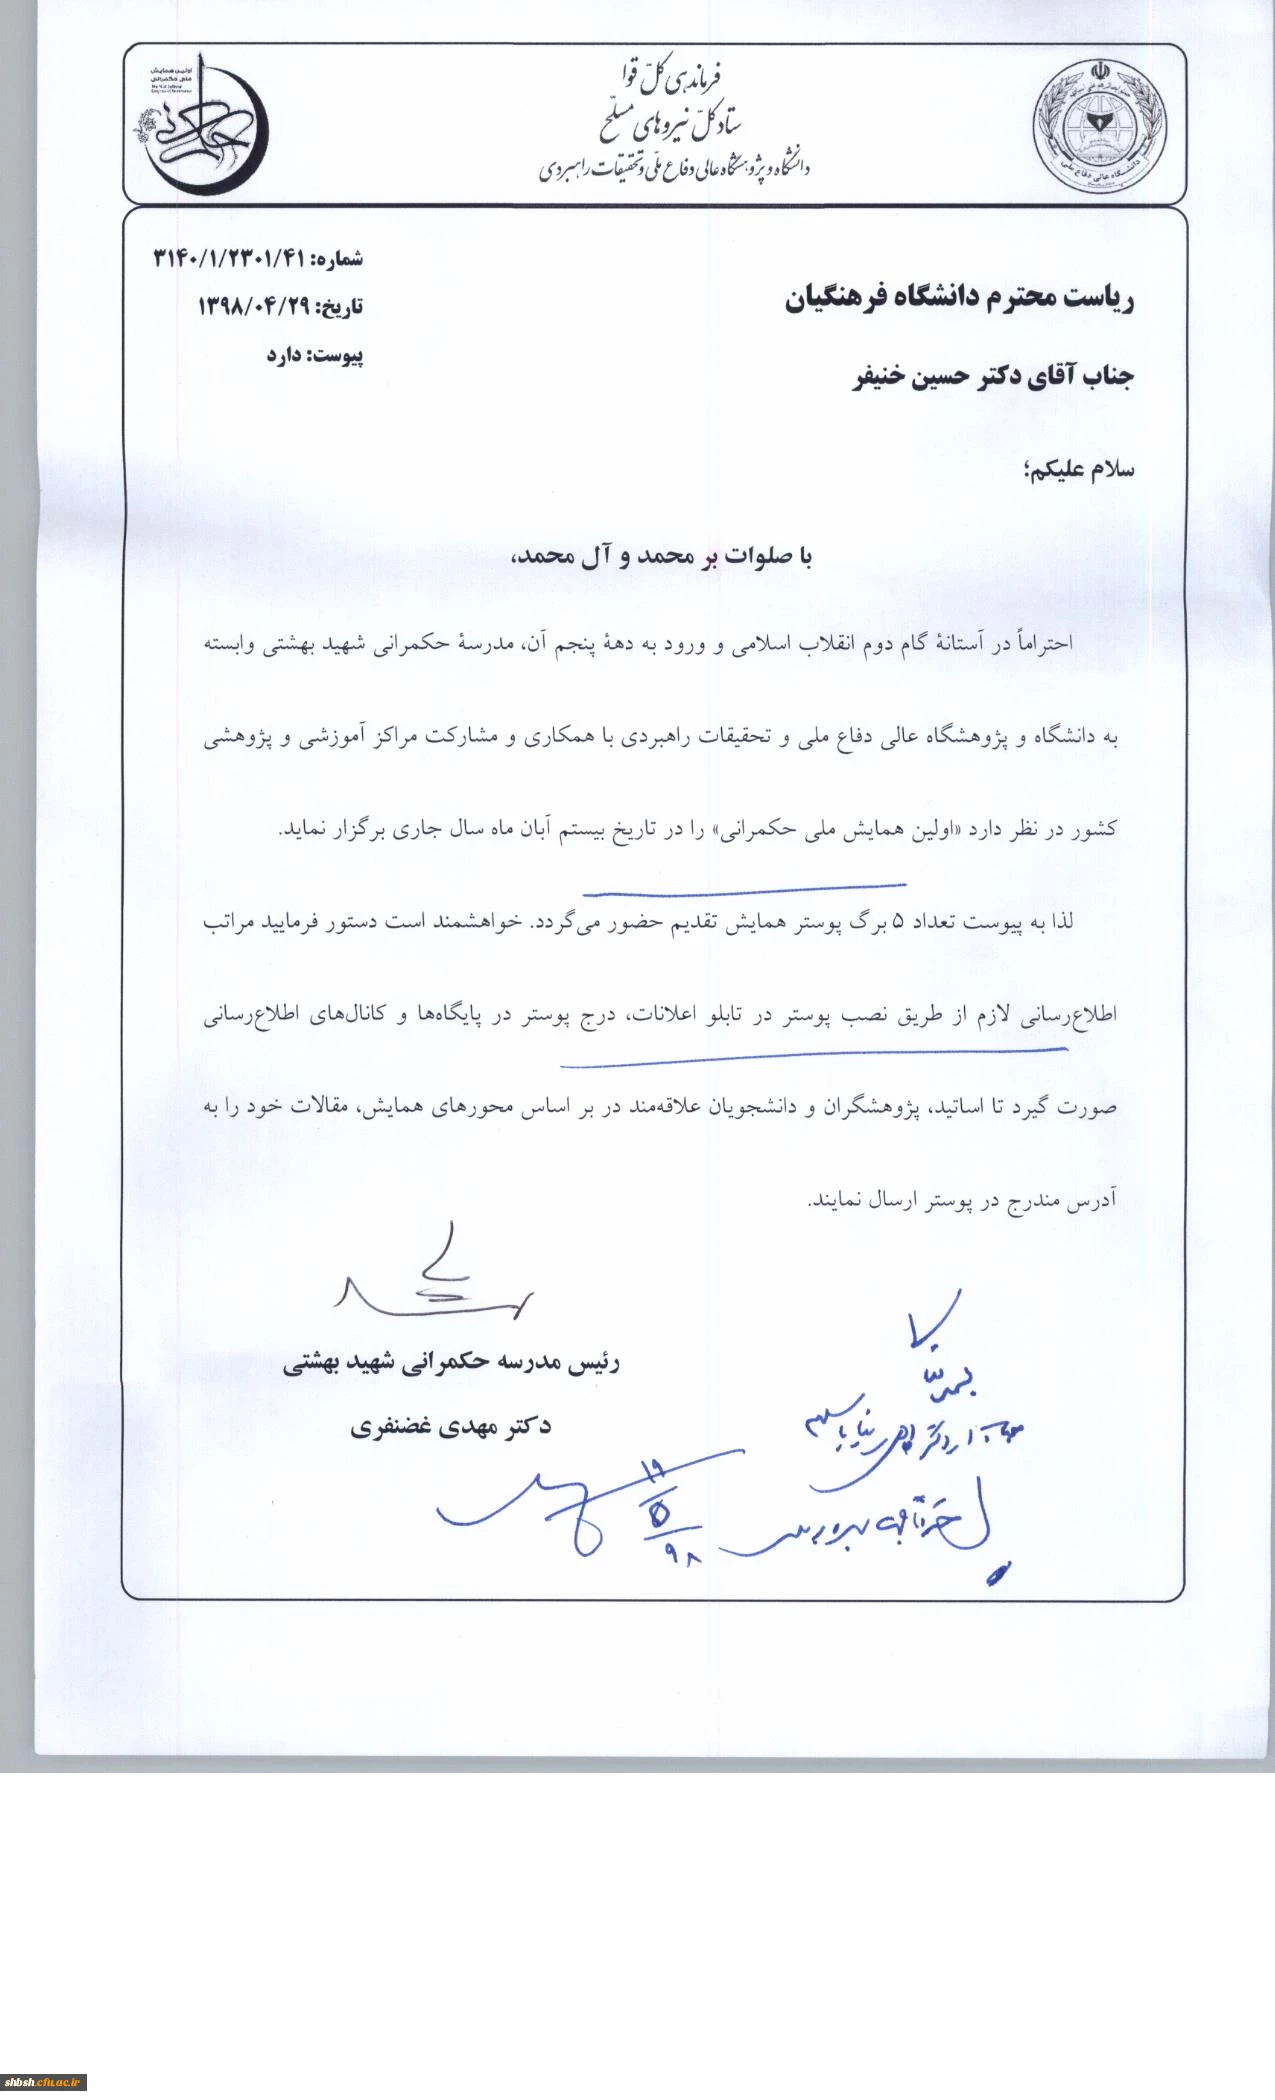 فرماندهی کلّ قوا
ستاد کلّ نیروهای مسلّح
دانشگاه و پژوهشگاه عالی دفاع ملّی و تحقیقات راهبردی
اولین همایش
ملی حکمرانی
حکمرانی
دانشگاه عالی دفاع ملی
شماره: ۳۱۴۰/۱/۲۳۰۱/۴۱
تاریخ: ۱۳۹۸/۰۴/۲۹
پیوست: دارد
ریاست محترم دانشگاه فرهنگیان
جناب آقای دکتر حسین خنیفر
سلام علیکم؛
با صلوات بر محمد و آل محمد،
احتراماً در آستانهٔ گام دوم انقلاب اسلامی و ورود به دههٔ پنجم آن، مدرسهٔ حکمرانی شهید بهشتی وابسته
به دانشگاه و پژوهشگاه عالی دفاع ملی و تحقیقات راهبردی با همکاری و مشارکت مراکز آموزشی و پژوهشی
کشور در نظر دارد «اولین همایش ملی حکمرانی» را در تاریخ بیستم آبان ماه سال جاری برگزار نماید.
لذا به پیوست تعداد ۵ برگ پوستر همایش تقدیم حضور می‌گردد. خواهشمند است دستور فرمایید مراتب
اطلاع‌رسانی لازم از طریق نصب پوستر در تابلو اعلانات، درج پوستر در پایگاه‌ها و کانال‌های اطلاع‌رسانی
صورت گیرد تا اساتید، پژوهشگران و دانشجویان علاقه‌مند در بر اساس محورهای همایش، مقالات خود را به
آدرس مندرج در پوستر ارسال نمایند.
رئیس مدرسه حکمرانی شهید بهشتی
دکتر مهدی غضنفری
۱۹
۵
۹۸
shbsh.cfu.ac.ir